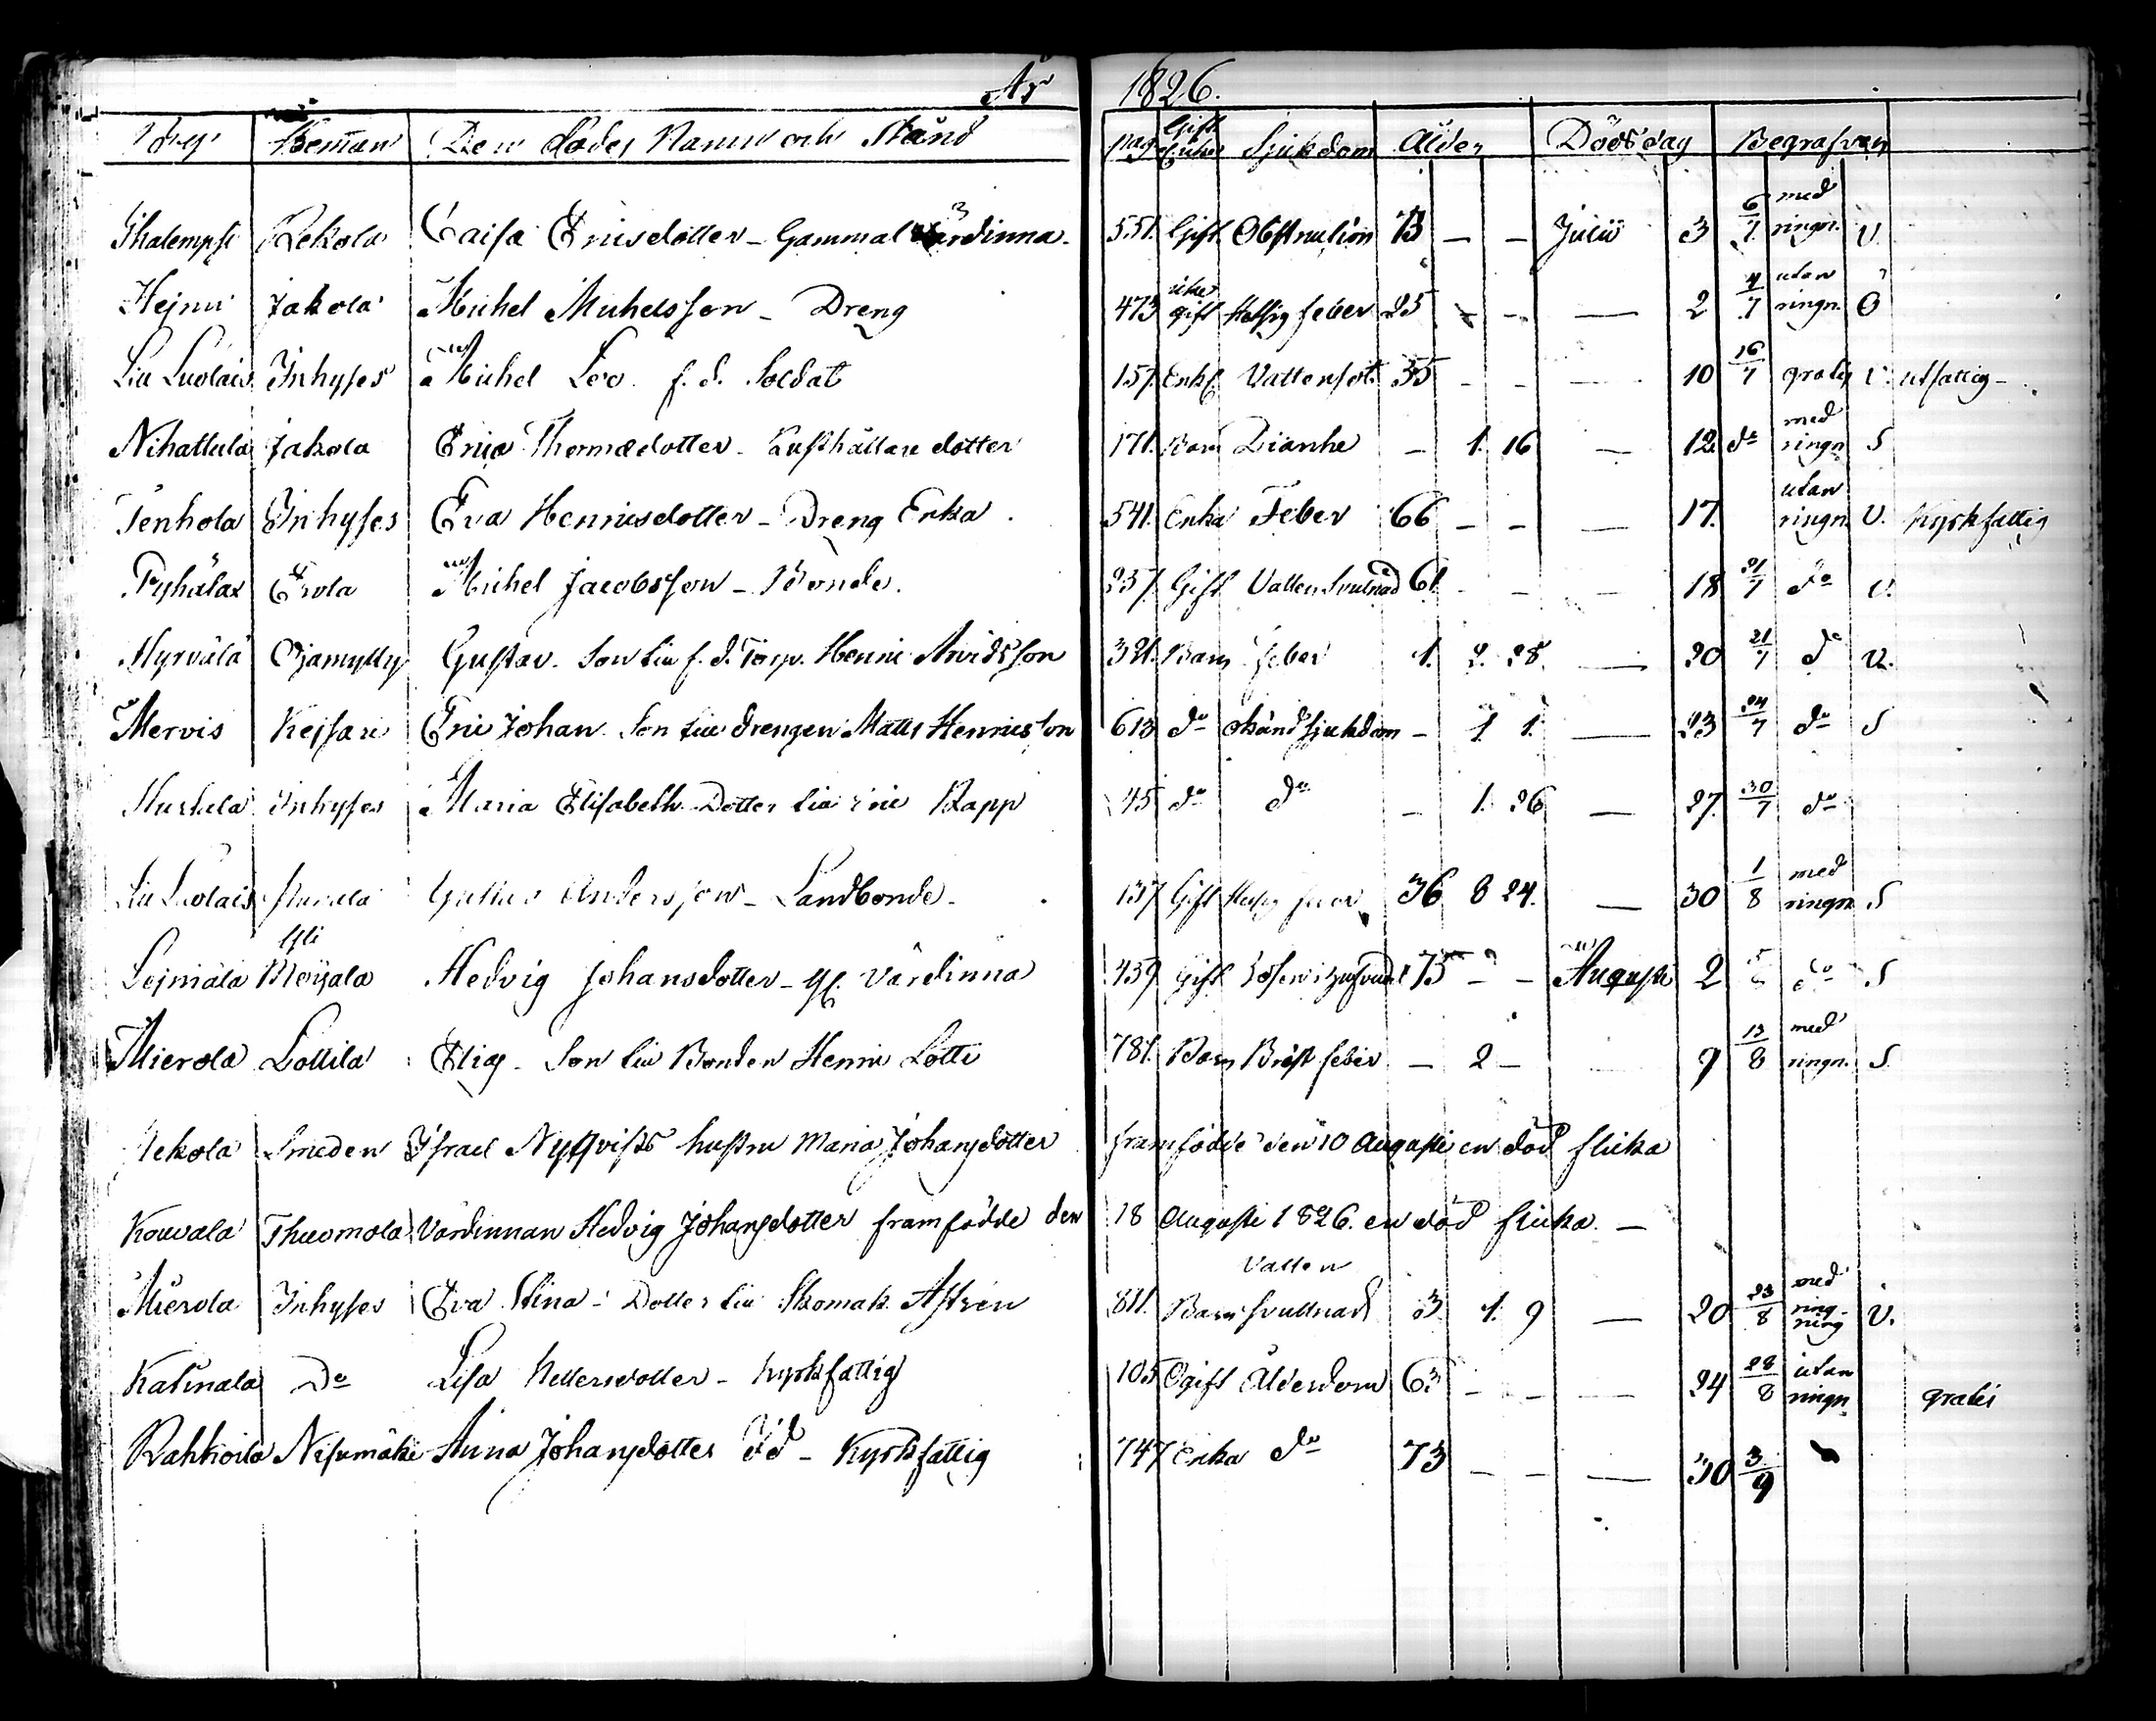 År 1826.
By Hemman Den dödes Namn och Stånd pag. Gift Enka Sjukdom Ålder Dödsdag Begrafven
Ihalempi Rekola Caisa Ericsdotter - Gammal Värdinna. 551. Gift Obstruction 73 — — Julii 3 6/7 med ringn. V.
Heinu Jakola Michel Michelsson - Dreng 473 icke gift Hetsig feber 25 - - — 2 4/7 utan ringn. O
Liu Luolais Inhyses Michel Leo f. d. Soldat 157 Enkl. Vattensot 35 - - — 10 16/7 gratis V. utfattig -
Nihattula Jakola Erica Thomædotter - Rusthållare dotter 171. Barn Diarrhe — 1. 16 — 12. do med ringn S
Tenhola Inhyses Eva Henricsdotter - Dreng Enka. 541. Enka Feber 66 - - — 17. utan ringn. V. Kyrkfattig
Pyhälax Erola Michel Jacobsson - Bonde. 237. Gift Vatten Svulnad 61. - - — 18 21/7 do V.
Myrvälä Ojamylly Gustav. Son till f. d. Torp. Henric Arvidsson 321. Barn feber 1. 2. 28. — 20 21/7 do V.
Mervis Keisari Eric Johan. Son till drengen Matts Henricsson 613 do okänd sjukdom - 1. 1. — 23 24/7 do S
Inhyses Maria Elisabeth Dotter till Eric Rapp 45 do do - 1. 26 — 27. 30/7 do
Liu Luolais Andersson - Landbonde - 137 Gift 36 8 24. — 30 1/8 med ringn S
Leinälä Yli Hedvig Johansdotter - gl. Värdinna 459 Gift 75 - - Augusti 2 do S
Mierola Lottila Elias - Son till Bonden Henric Lotti 781. Barn Bröst feber — 2 - 9 13/8 med ringn. S
Rekola Smeden Israel Nyqvists hustru Maria Johansdotter framfödde den 10 Augusti en död flicka
Kouvala Thuomola Värdinnan Hedvig Johansdotter framfödde den 18 Augusti 1826. en död flicka. —
Mierola Inhyses Eva Stina - Dotter till Skomak. Astrén 811. Barn Vatten svullnad 3. 1. 9 — 20 23/8 med ringning V.
Katinala Do Lisa - kyrkfattig 105 Ogift Ålderdom 63 - - — 24 28/8 utan ringn gratis
Rahkoila Anna Johansdotter - Kyrkfattig 747 Enka do 73 - - — 30 3/9